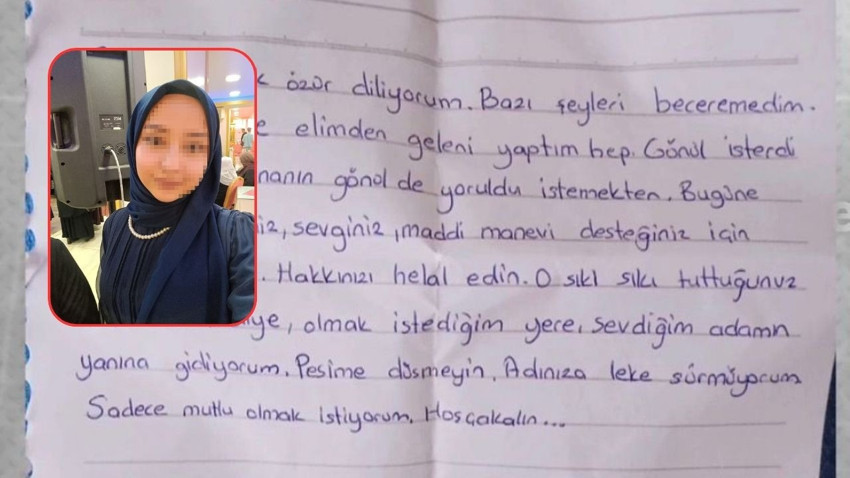 özür diliyorum. Bazı şeyleri beceremedim.
elimden geleni yaptım hep. Gönül isterdi
gönül de yoruldu istemekten. Bugüne
sevginiz, maddi manevi desteğiniz için
Hakkınızı helal edin. O sıkı sıkı tuttuğunuz
olmak istediğim yere, sevdiğim adamın
yanına gidiyorum. Peşime düşmeyin. Adınıza leke sürmüyorum
Sadece mutlu olmak istiyorum. Hoşçakalın...